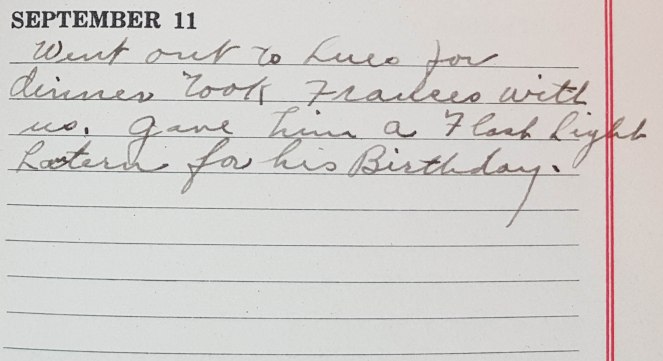 SEPTEMBER 11
Went out to Lues for
dinner Took Frances with
us. Gave him a Flash Light
Latern for his Birthday.